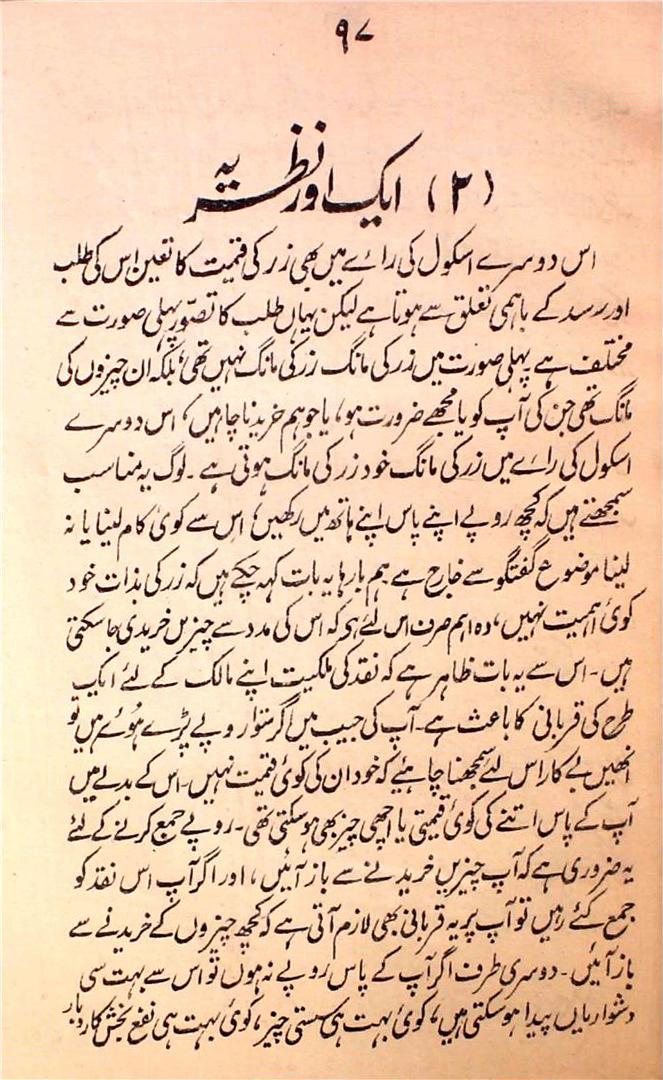 ۹۷
(۲) ایک اور نظریہ
اس دوسرے اسکول کی رائے میں بھی زر کی قیمت کا تعین اس کی طلب
اور رسد کے باہمی تعلق سے ہوتا ہے لیکن یہاں طلب کا تصوّر پہلی صورت سے
مختلف ہے پہلی صورت میں زر کی مانگ زر کی مانگ نہیں تھی، بلکہ ان چیزوں کی
مانگ تھی جن کی آپ کو یا مجھے ضرورت ہو، یا جو ہم خریدنا چاہیں، اس دوسرے
اسکول کی رائے میں زر کی مانگ خود زر کی مانگ ہوتی ہے۔ لوگ یہ مناسب
سمجھتے ہیں کہ کچھ روپے اپنے پاس اپنے ہاتھ میں رکھیں، اس سے کوئی کام لینا یا نہ
لینا موضوع گفتگو سے خارج ہے ہم بارہا یہ بات کہہ چکے ہیں کہ زر کی بذات خود
کوئی اہمیت نہیں، وہ اہم صرف اس لئے ہی کہ اس کی مدد سے چیزیں خریدی جا سکتی
ہیں۔ اس سے یہ بات ظاہر ہے کہ نقد کی ملکیت اپنے مالک کے لئے ایک
طرح کی قربانی کا باعث ہے۔ آپ کی جیب میں اگر سَو روپے پڑے ہوئے ہیں تو
انھیں بے کار اس لئے سمجھنا چاہئیے کہ خود ان کی کوئی قیمت نہیں۔ اس کے بدلے میں
آپ کے پاس اتنے کی کوئی قیمتی یا اچھی چیز بھی ہو سکتی تھی۔ روپے جمع کرنے کے لئے
یہ ضروری ہے کہ آپ چیزیں خریدنے سے باز آئیں، اور اگر آپ اس نقد کو
جمع کئے رہیں تو آپ پر یہ قربانی بھی لازم آتی ہے کہ کچھ چیزوں کے خریدنے سے
باز آئیں۔ دوسری طرف اگر آپ کے پاس روپے نہ ہوں تو اس سے بہت سی
دشواریاں پیدا ہو سکتی ہیں، کوئی بہت ہی سستی چیز، کوئی بہت ہی نفع بخش کاروبار